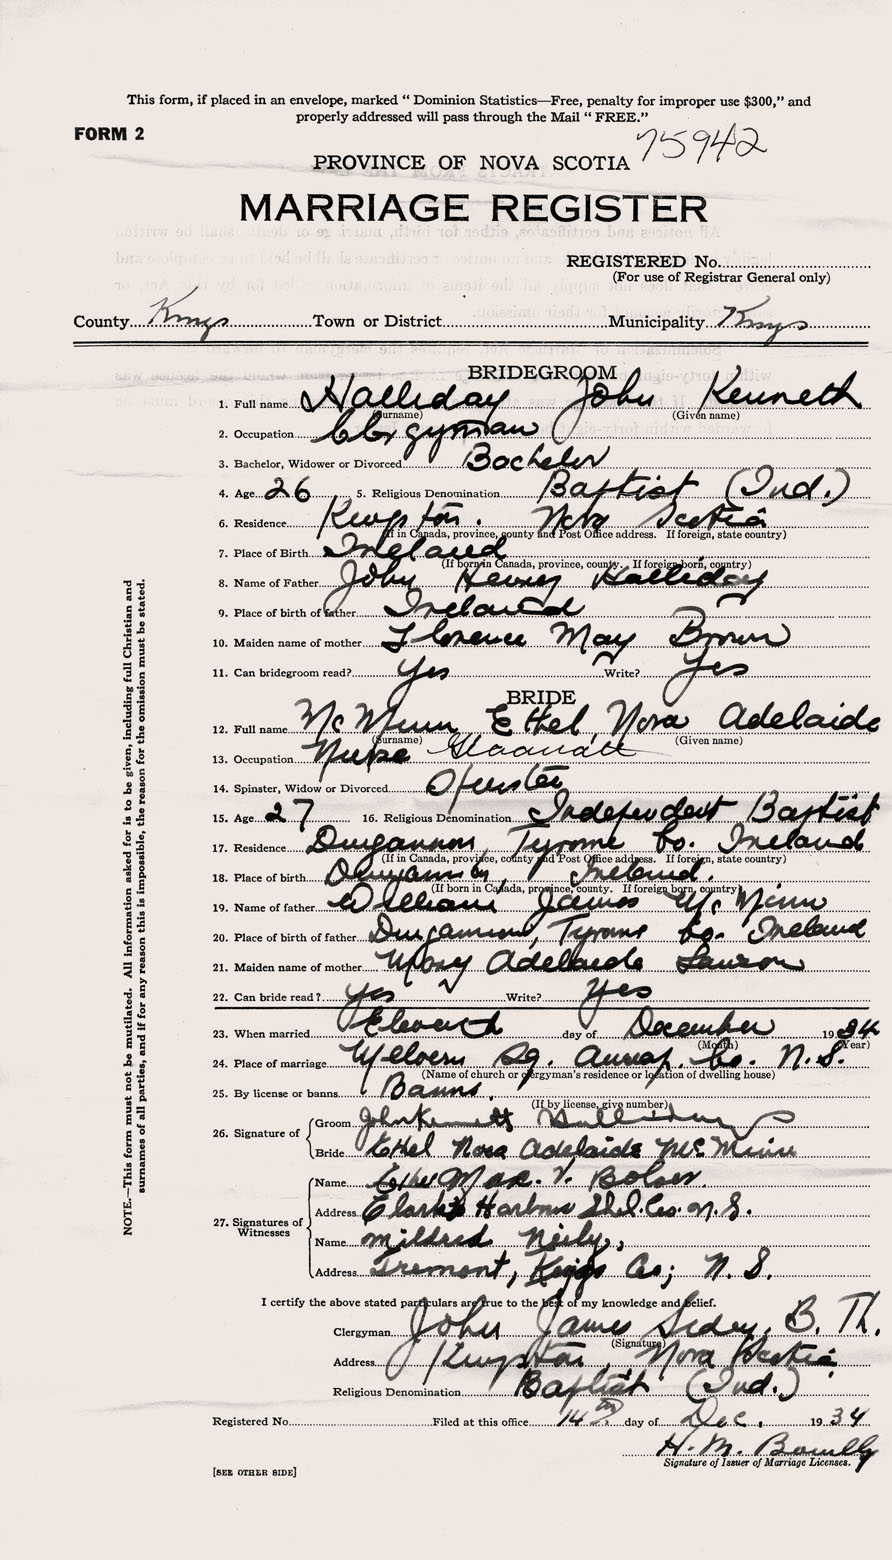 This form, if placed in an envelope, marked “ Dominion Statistics—Free, penalty for improper use $300,” and
properly addressed will pass through the Mail “ FREE.”
FORM 2
75942
PROVINCE OF NOVA SCOTIA
MARRIAGE REGISTER
REGISTERED No.
(For use of Registrar General only)
County Kings Town or District Municipality Kings
BRIDEGROOM
1. Full name Halliday John Kenneth
(Surname) (Given name)
2. Occupation Clergyman
3. Bachelor, Widower or Divorced Bachelor
4. Age 26 5. Religious Denomination Baptist (Ind.)
6. Residence Kingston. Nova Scotia
(If in Canada, province, county and Post Office address. If foreign, state country)
7. Place of Birth Ireland
(If born in Canada, province, county. If foreign born, country)
8. Name of Father John Henry Halliday
9. Place of birth of father Ireland
10. Maiden name of mother Florence May Brown
11. Can bridegroom read? Yes Write? Yes
BRIDE
12. Full name McMinn Ethel Nora Adelaide
(Surname) (Given name)
13. Occupation Nurse Graduate
14. Spinster, Widow or Divorced Spinster
15. Age 27 16. Religious Denomination Independent Baptist
17. Residence Dungannon, Tyrone Co. Ireland
(If in Canada, province, county and Post Office address. If foreign, state country)
18. Place of birth Dungannon, Ireland.
(If born in Canada, province, county. If foreign born, country)
19. Name of father William James McMinn
20. Place of birth of father Dungannon, Tyrone Co. Ireland
21. Maiden name of mother Mary Adelaide Lawson
22. Can bride read? Yes Write? Yes
23. When married Eleventh day of December 1934
(Month) (Year)
24. Place of marriage Melvern Sq. Annap. Co. N.S.
(Name of church or clergyman's residence or location of dwelling house)
25. By license or banns Banns.
(If by license, give number)
26. Signature of
Groom John Kenneth Halliday
Bride Ethel Nora Adelaide McMinn
27. Signatures of Witnesses
Name Mrs. V. Bolser.
Address Clark's Harbour Shel. Co. N.S.
Name Mildred Neily,
Address Tremont, Kings Co; N. S.
I certify the above stated particulars are true to the best of my knowledge and belief.
Clergyman John James Sidey, B. Th.
(Signature)
Address Kingston, Nova Scotia.
Religious Denomination Baptist (Ind.)
Registered No. Filed at this office 14th day of Dec. 1934
H. M.
Signature of Issuer of Marriage Licenses.
[SEE OTHER SIDE]
NOTE.—This form must not be mutilated. All information asked for is to be given, including full Christian and
surnames of all parties, and if for any reason this is impossible, the reason for the omission must be stated.